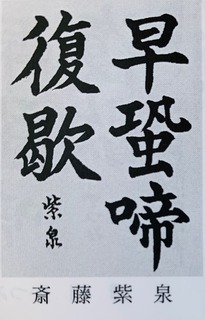 早蛩啼
復歇
紫泉
斎藤紫泉